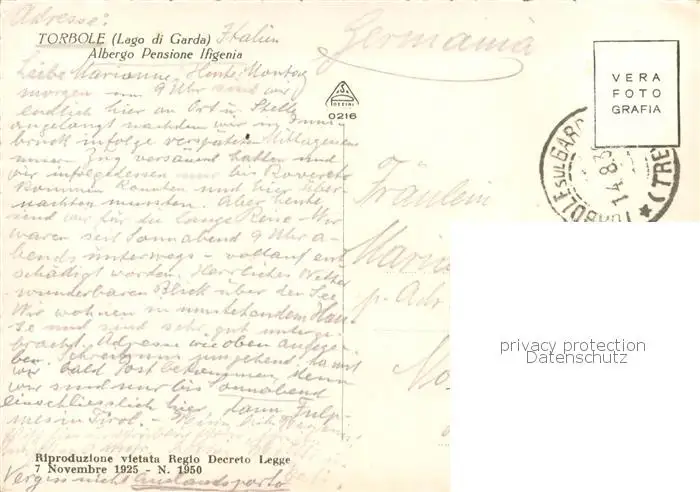 Adresse:
TORBOLE (Lago di Garda) Italien
Albergo Pensione Ifigenia
Germania
VERA
FOTO
GRAFIA
0216
Liebe Marianne, Heute Montag
morgen um 9 Uhr sind wir
endlich hier an Ort u. Stelle
angelangt nachdem wir in Inns-
bruck infolge verspäteten Mittagessens
unser Zug versäumt hatten und
wir infolgedessen nur bis Rovereto
kommen konnten und hier über-
nachten mussten. Aber heute
sind wir für die lange Reise. Wir
waren seit Sonnabend 9 Uhr a-
bends unterwegs - vollauf ent-
schädigt worden. Herrliches Wetter
wunderbaren Blick über den See
Wir wohnen in umstehendem Hau-
se und sind sehr gut unterge-
bracht. Adresse wie oben angege-
ben. Schreib nun umgehend, damit
wir bald Post bekommen, denn
wir sind nur bis Sonnabend
einschliesslich hier, dann Fulp-
mes in Tirol.
Fräulein
p. Adr
TORBOLE SUL GARDA
14.8.3
(TRE
privacy protection
Datenschutz
Riproduzione vietata Regio Decreto Legge
7 Novembre 1925 - N. 1950
Vergiss nicht Auslandsporto